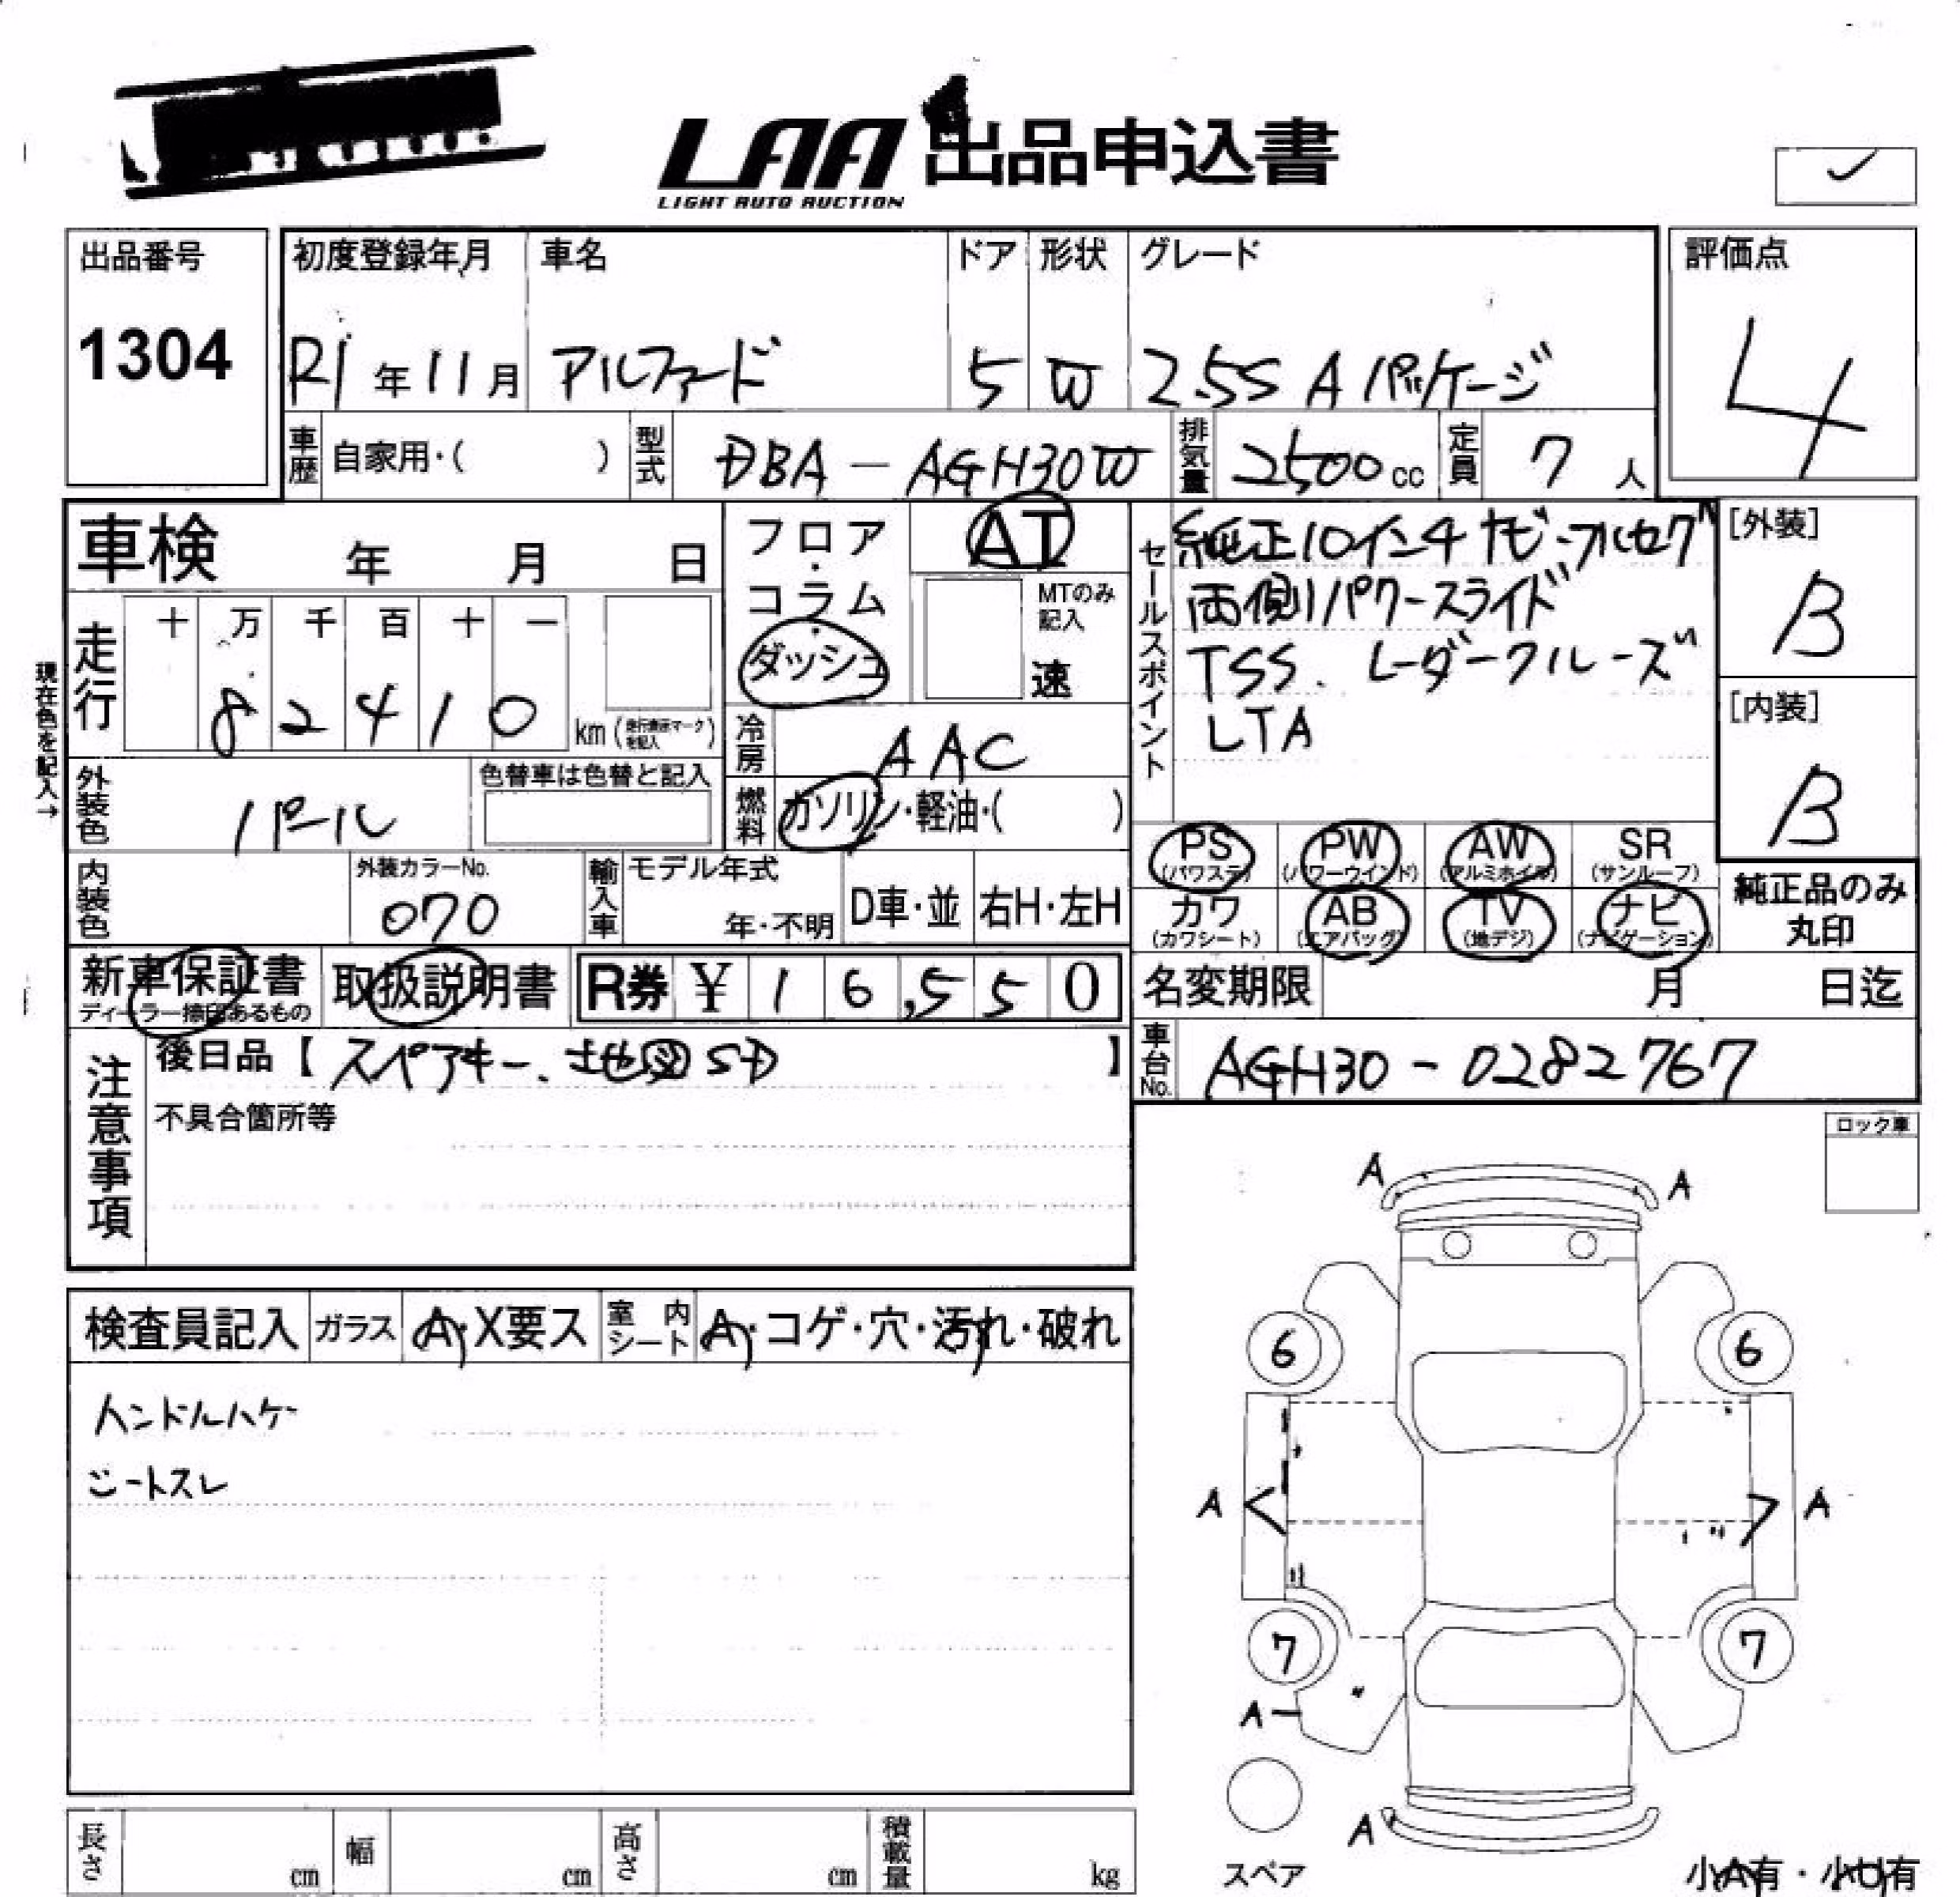 LAA 出品申込書
LIGHT AUTO AUCTION
出品番号
1304
初度登録年月
R1年11月
車名
アルファード
ドア
5
形状
W
グレード
2.5S Aパッケージ
評価点
4
車歴 自家用・( )
型式 DBA-AGH30W
排気量 2500cc
定員 7人
車検 年 月 日
フロア・コラム・ダッシュ
AT
MTのみ記入
速
セールスポイント
純正10インチナビ・フルセグ
両側パワースライド
TSS. レーダークルーズ
LTA
[外装]
B
[内装]
B
現在色を記入→
走行
十 万 千 百 十 一
8 2 4 1 0
km (走行表示マークを記入)
冷房 AAC
外装色 パール
色替車は色替と記入
燃料 ガソリン・軽油・( )
PS (パワステ)
PW (パワーウインド)
AW (アルミホイル)
SR (サンルーフ)
内装色
外装カラーNo.
070
輸入車
モデル年式
年・不明
D車・並
右H・左H
カワ (カワシート)
AB (エアバッグ)
TV (地デジ)
ナビ (ナビゲーション)
純正品のみ
丸印
新車保証書
ディーラー捺印あるもの
取扱説明書
R券 ¥ 16,550
名変期限 月 日迄
注意事項
後日品【スペアキー、地図SD】
不具合箇所等
車台No. AGH30-0282767
ロック車
検査員記入 ガラス A・X要ス 室内シート A・コゲ・穴・汚れ・破れ
ハンドルハゲ
シートスレ
A A
6 6
A A
7 7
A
A
スペア
小A有・小U有
長さ cm 幅 cm 高さ cm 積載量 kg